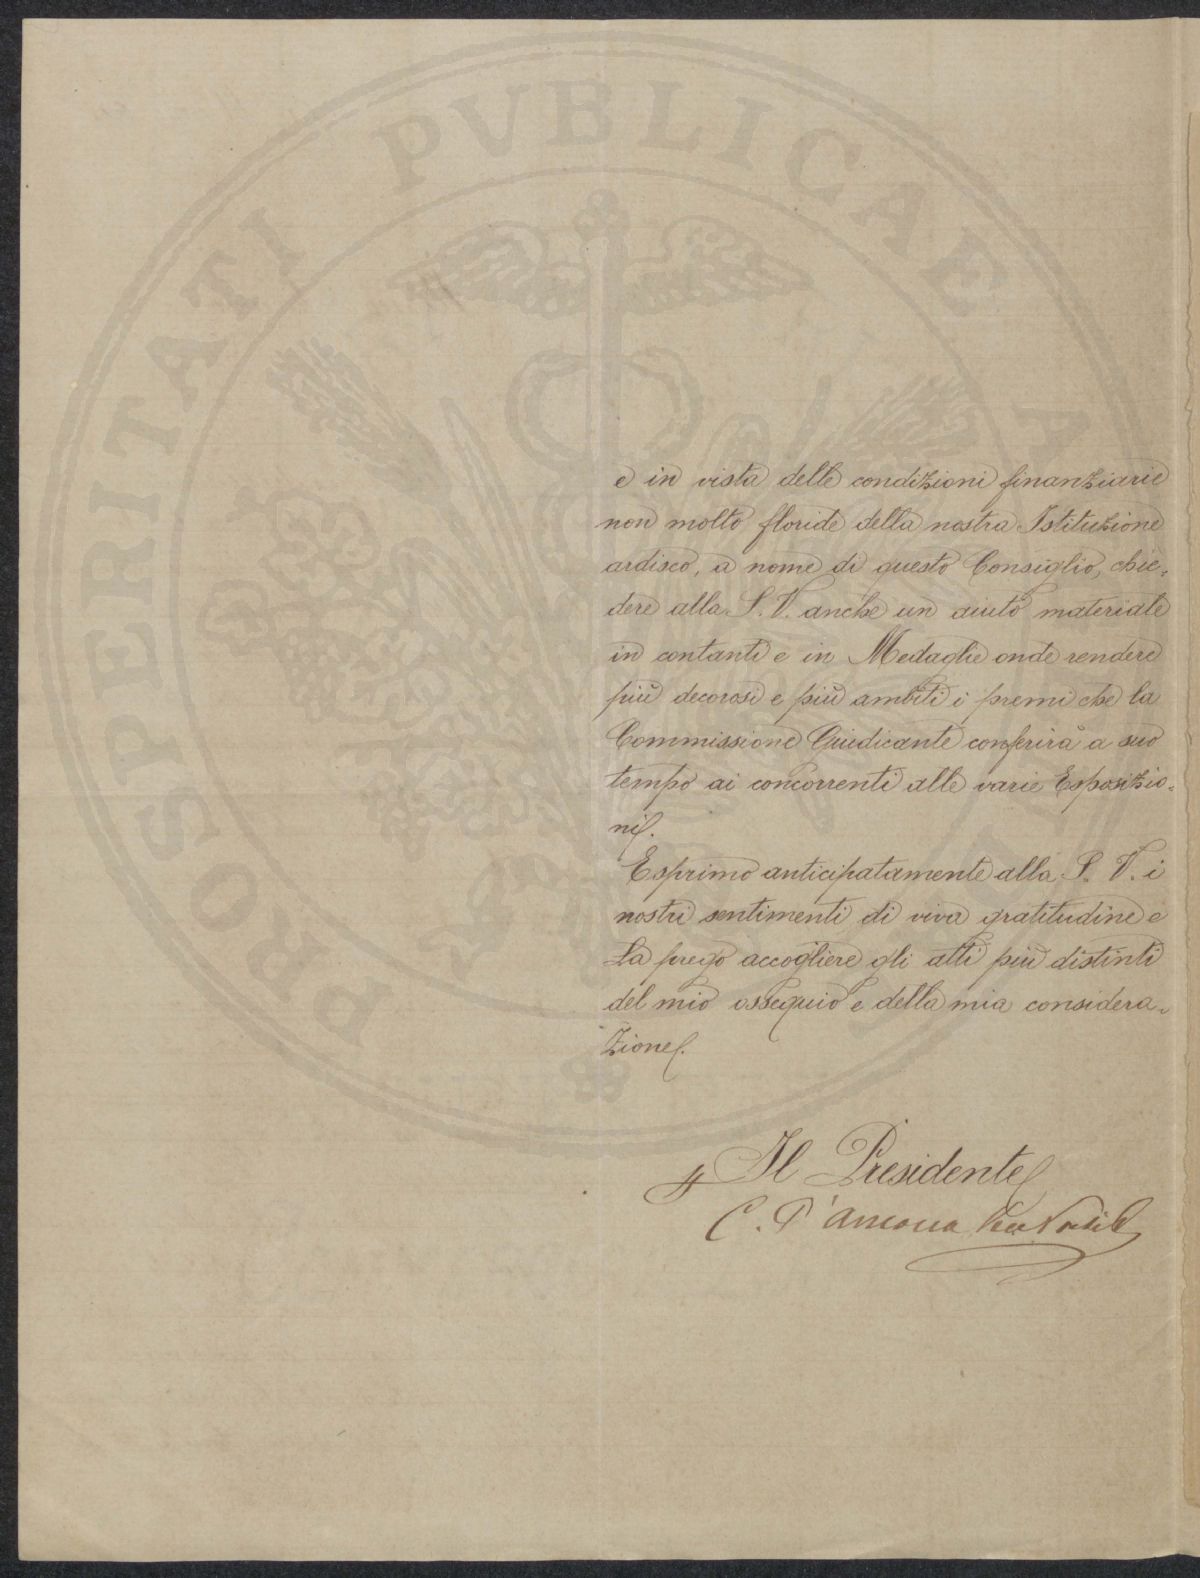 PROSPERITATI PVBLICAE A
e in vista delle condizioni finanziarie
non molto floride della nostra Istituzione
ardisco, a nome di questo Consiglio, chie=
dere alla S. V. anche un aiuto materiale
in contanti e in Medaglie onde rendere
più decorosi e più ambiti i premi che la
Commissione Giudicante conferirà a suo
tempo ai concorrenti alle varie Esposizio=
ni.
Esprimo anticipatamente alla S. V. i
nostri sentimenti di viva gratitudine e
La prego accogliere gli atti più distinti
del mio ossequio e della mia considera=
zione.
Il Presidente
C. D'Ancona